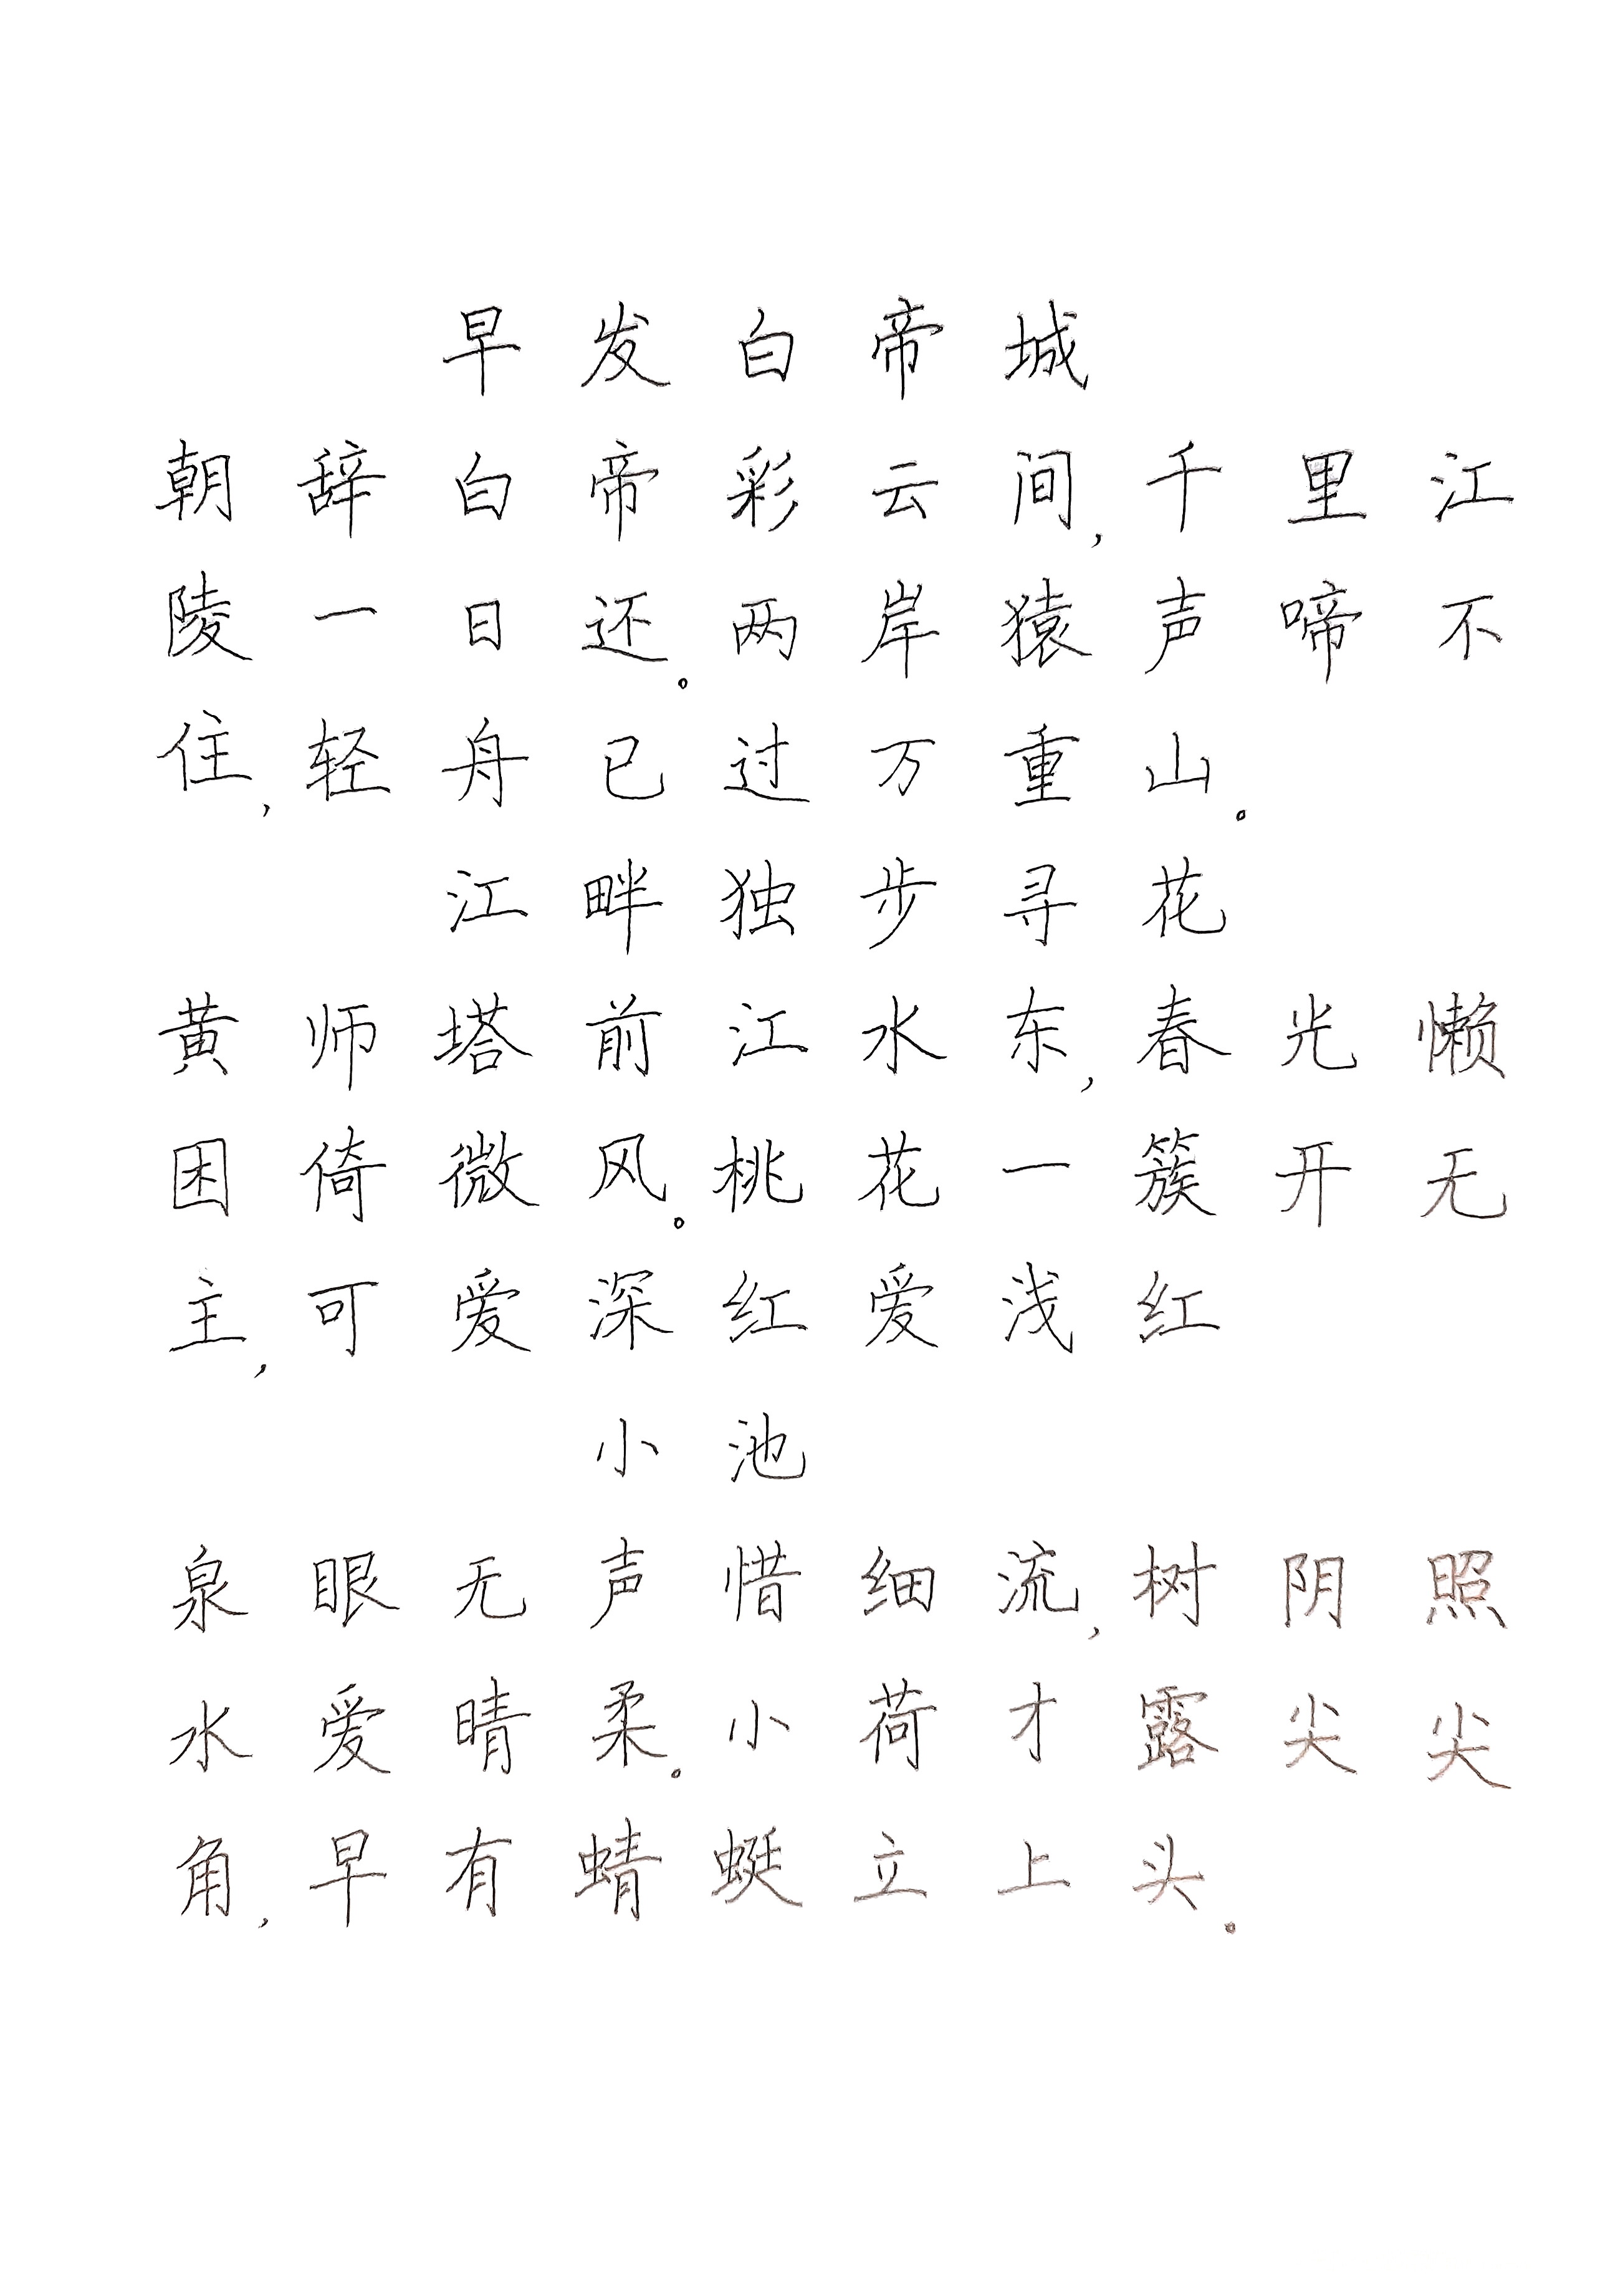 早发白帝城
朝辞白帝彩云间,千里江
陵一日还。两岸猿声啼不
住,轻舟已过万重山。
江畔独步寻花
黄师塔前江水东,春光懒
困倚微风。桃花一簇开无
主,可爱深红爱浅红
小池
泉眼无声惜细流,树阴照
水爱晴柔。小荷才露尖尖
角,早有蜻蜓立上头。